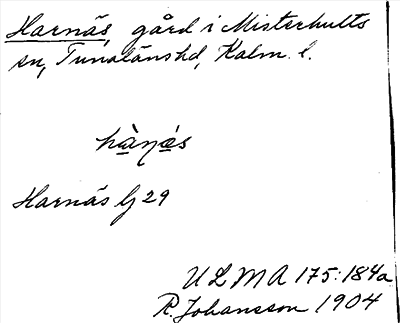 Harnäs, gård i Misterhults
sn, Tunalänshd, Kalm. l.
Harnäs Lj 29
ULMA 175:184a
R. Johansson 1904